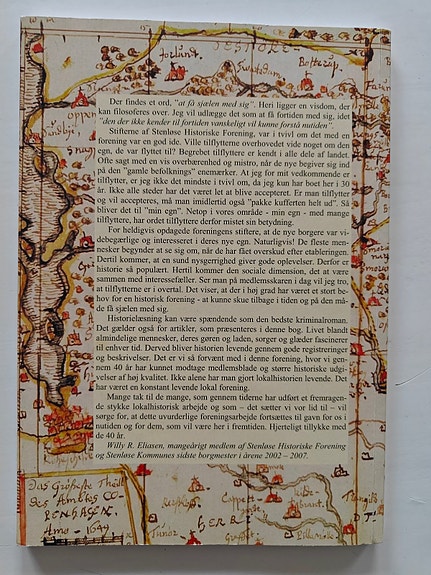 JESTORE
forlunt.
Bofterup.
Swatodam
oppen
Der findes et ord, "at få sjælen med sig". Heri ligger en visdom, der
kan filosoferes over. Jeg vil udlægge det som at få fortiden med sig, idet
"den der ikke kender til fortiden vanskeligt vil kunne forstå nutiden".
Stifterne af Stenløse Historiske Forening, var i tvivl om det med en
forening var en god ide. Ville tilflytterne overhovedet vide noget om den
egn, de var flyttet til? Begrebet tilflyttere er kendt i alle dele af landet.
Ofte sagt med en vis overbærenhed og mistro, når de nye begiver sig ind
på den "gamle befolknings" enemærker. At jeg for mit vedkommende er
tilflytter, er jeg ikke det mindste i tvivl om, da jeg kun har boet her i 30
år. Ikke alle steder har det været let at blive accepteret. Er man tilflytter
og vil accepteres, må man imidlertid også "pakke kufferten helt ud". Så
bliver det til "min egn". Netop i vores område - min egn - med mange
tilflyttere, har ordet tilflyttere derfor mistet sin betydning.
For heldigvis opdagede foreningens stiftere, at de nye borgere var vi-
debegærlige og interesseret i deres nye egn. Naturligvis! De fleste men-
nesker begynder at se sig om, når de har fået overskud efter etableringen.
Dertil kommer, at en sund nysgerrighed giver gode oplevelser. Derfor er
historie så populært. Hertil kommer den sociale dimension, det at være
sammen med interessefæller. Ser man på medlemsskaren i dag vil jeg tro,
at tilflytterne er i overtal. Det viser, at der i høj grad har været et stort be-
hov for en historisk forening - at kunne skue tilbage i tiden og på den må-
de få sjælen med sig.
Historielæsning kan være spændende som den bedste kriminalroman.
Det gælder også for artikler, som præsenteres i denne bog. Livet blandt
almindelige mennesker, deres gøren og laden, sorger og glæder fascinerer
til enhver tid. Derved bliver historien levende gennem gode registreringer
og beskrivelser. Det er vi så forvænt med i denne forening, hvor vi gen-
nem 40 år har kunnet modtage medlemsblade og større historiske udgi-
velser af høj kvalitet. Ikke alene har man gjort lokalhistorien levende. Det
har været en konstant levende lokal forening.
Mange tak til de mange, som gennem tiderne har udført et fremragen-
de stykke lokalhistorisk arbejde og som – det sætter vi vor lid til – vil
sørge for, at dette uvurderlige foreningsarbejde fortsættes til gavn for os i
nutiden og for dem, som vil være her i fremtiden. Hjerteligt tillykke med
de 40 år.
Willy R. Eliasen, mangeårigt medlem af Stenløse Historiske Forening
og Stenløse Kommunes sidste borgmester i årene 2002 – 2007.
Das Größeste Theil
des Ambtes CO-
PENHAGEN.
Anno - 1649
HERR